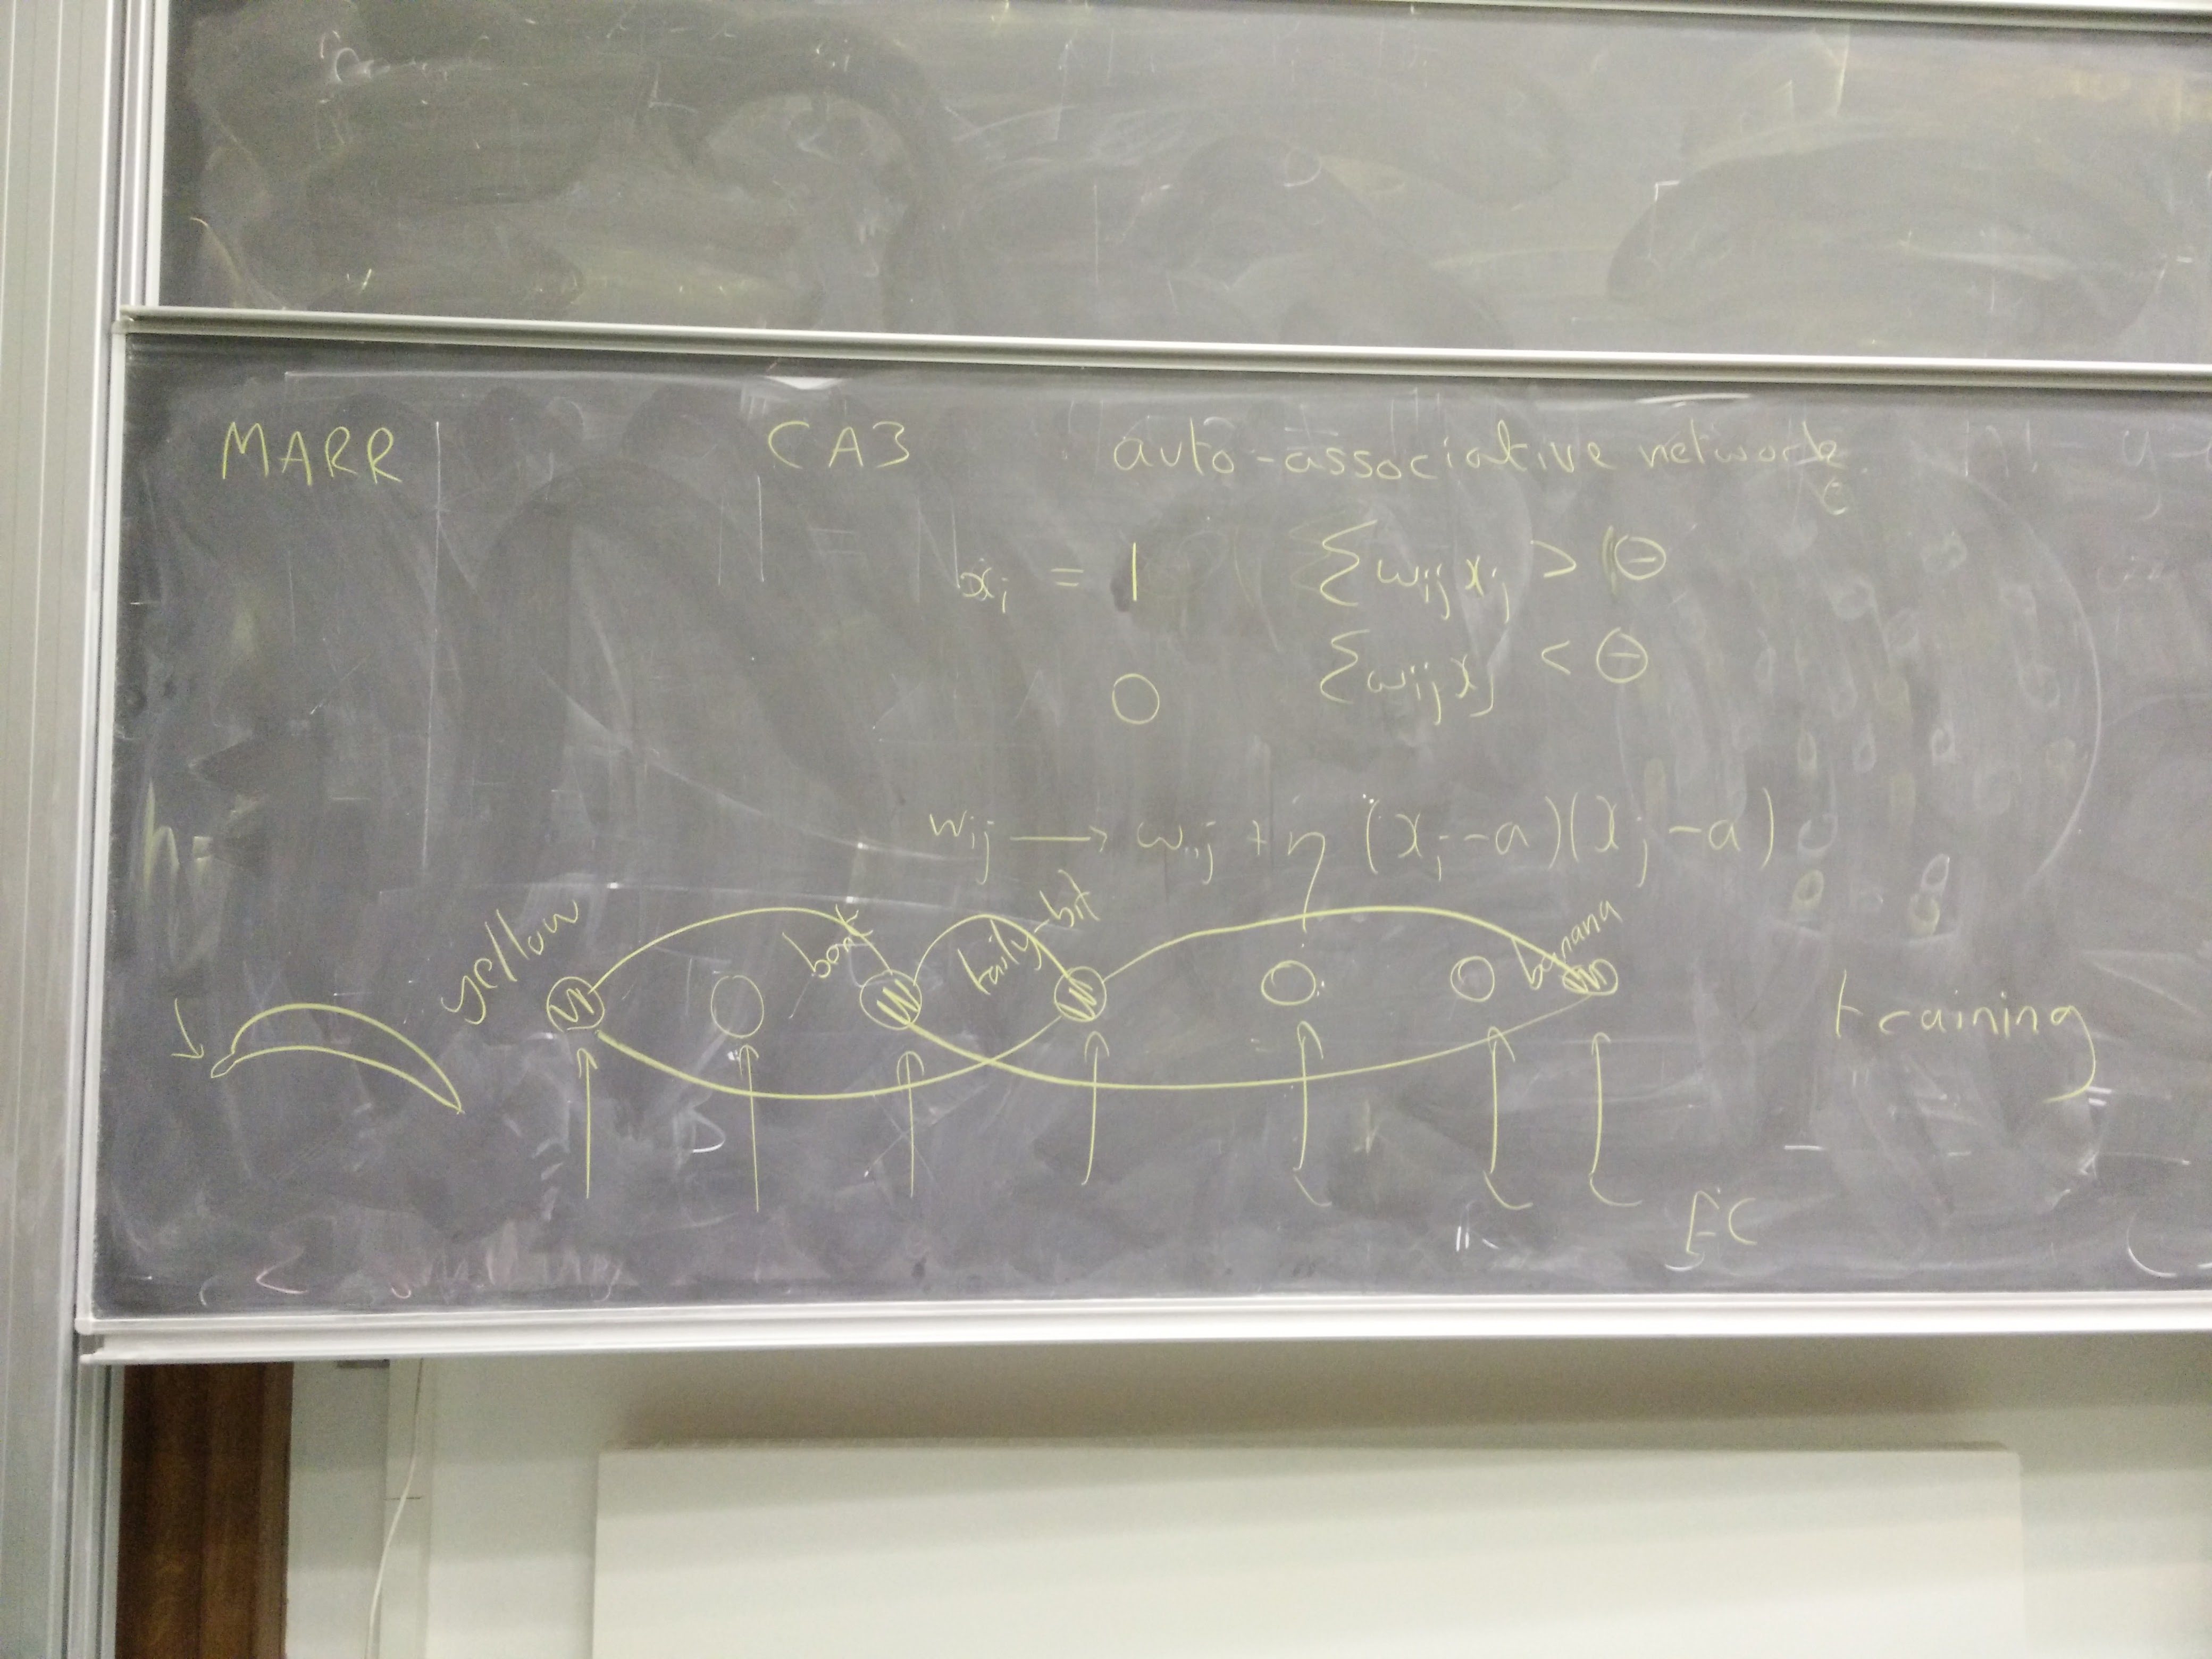 MARR CA3 auto-associative network
xᵢ = 1 Σwᵢⱼxⱼ > Θ
0 Σwᵢⱼxⱼ < Θ
wᵢⱼ → wᵢⱼ + η (xᵢ - a)(xⱼ - a)
yellow taily-bit banana
training
EC